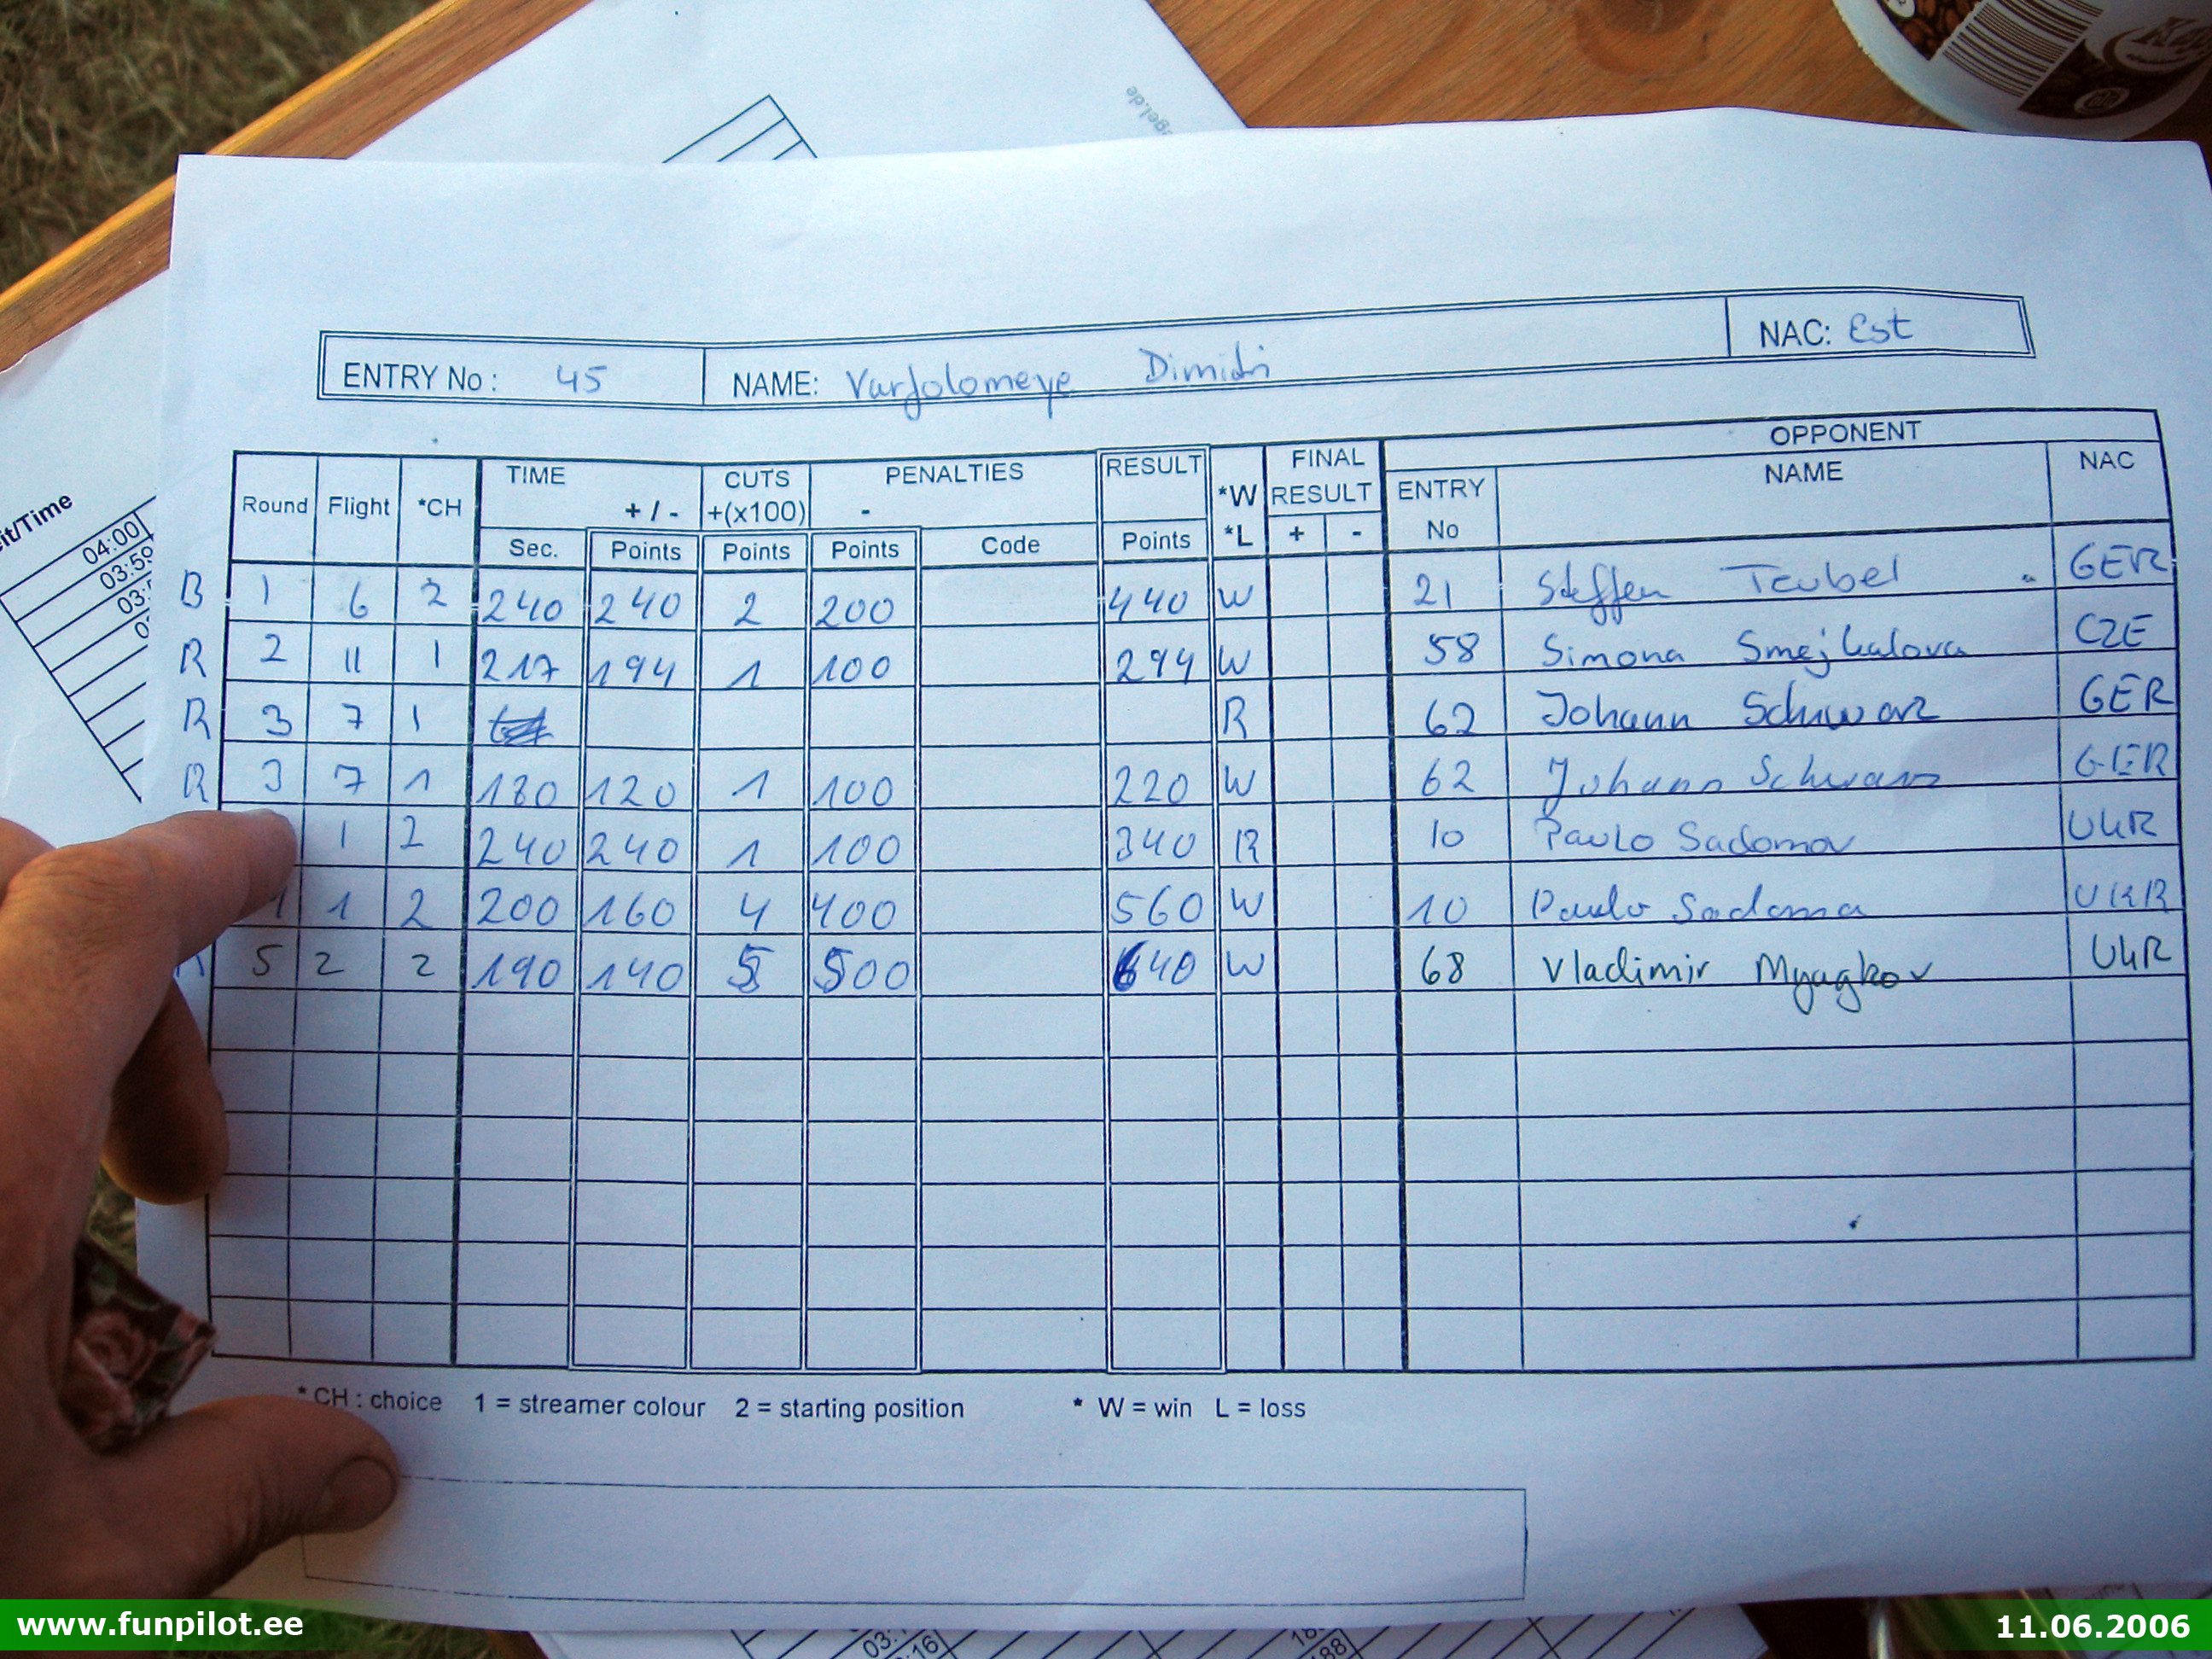 egel.de
it/Time
04:00
ENTRY No: 45 NAME: Varfolomeye Dimitri NAC: Est
OPPONENT
Round Flight *CH TIME + / - CUTS +(x100) PENALTIES - RESULT *W *L FINAL RESULT + - ENTRY No NAME NAC
Sec. Points Points Points Code Points
B 1 6 2 240 240 2 200 440 W 21 Steffen Teubel GER
R 2 11 1 217 194 1 100 294 W 58 Simona Smejkalova CZE
R 3 7 1 R 62 Johann Schwarz GER
R 3 7 1 180 120 1 100 220 W 62 Johann Schwarz GER
1 2 240 240 1 100 340 R 10 Paulo Sadomov UKR
1 2 200 160 4 400 560 W 10 Paulo Sadoma UKR
5 2 2 190 140 5 500 640 W 68 Vladimir Myagkov UKR
* CH : choice 1 = streamer colour 2 = starting position * W = win L = loss
www.funpilot.ee
11.06.2006